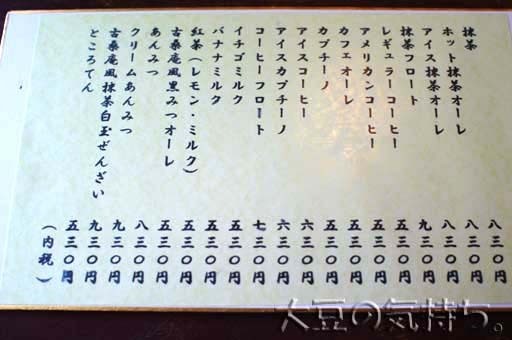 抹茶 八三〇円
ホット抹茶オーレ 八三〇円
アイス抹茶オーレ 八三〇円
抹茶フロート 九三〇円
レギュラーコーヒー 五三〇円
アメリカンコーヒー 五三〇円
カフェオーレ 五三〇円
カプチーノ 五三〇円
アイスコーヒー 六三〇円
アイスカプチーノ 六三〇円
コーヒーフロート 七三〇円
イチゴミルク 五三〇円
バナナミルク 五三〇円
紅茶（レモン・ミルク） 五三〇円
古桑庵風黒みつオーレ 五三〇円
あんみつ 八三〇円
クリームあんみつ 九三〇円
古桑庵風抹茶白玉ぜんざい 九三〇円
ところてん 五三〇円
（内税）
大豆の気持ち。